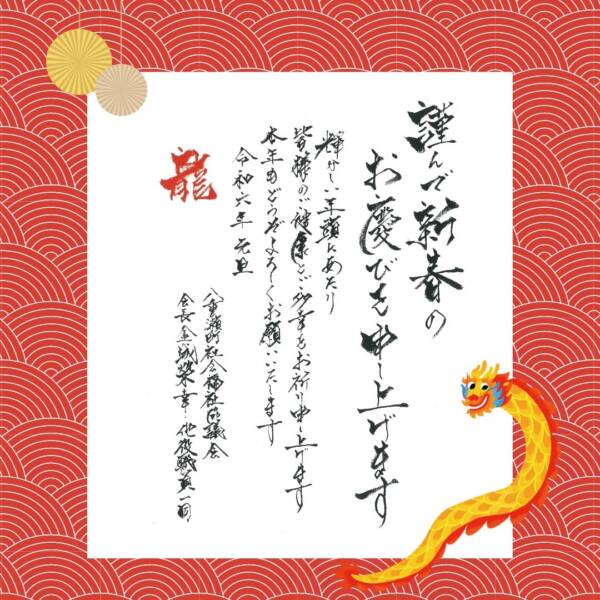 謹んで新春の
お慶びを申し上げます
輝かしい年頭にあたり
皆様のご健康とご多幸をお祈り申し上げます
本年もどうぞよろしくお願いいたします
令和六年 元旦
龍
八重瀬町社会福祉協議会
会長 金城榮幸 他役職員一同